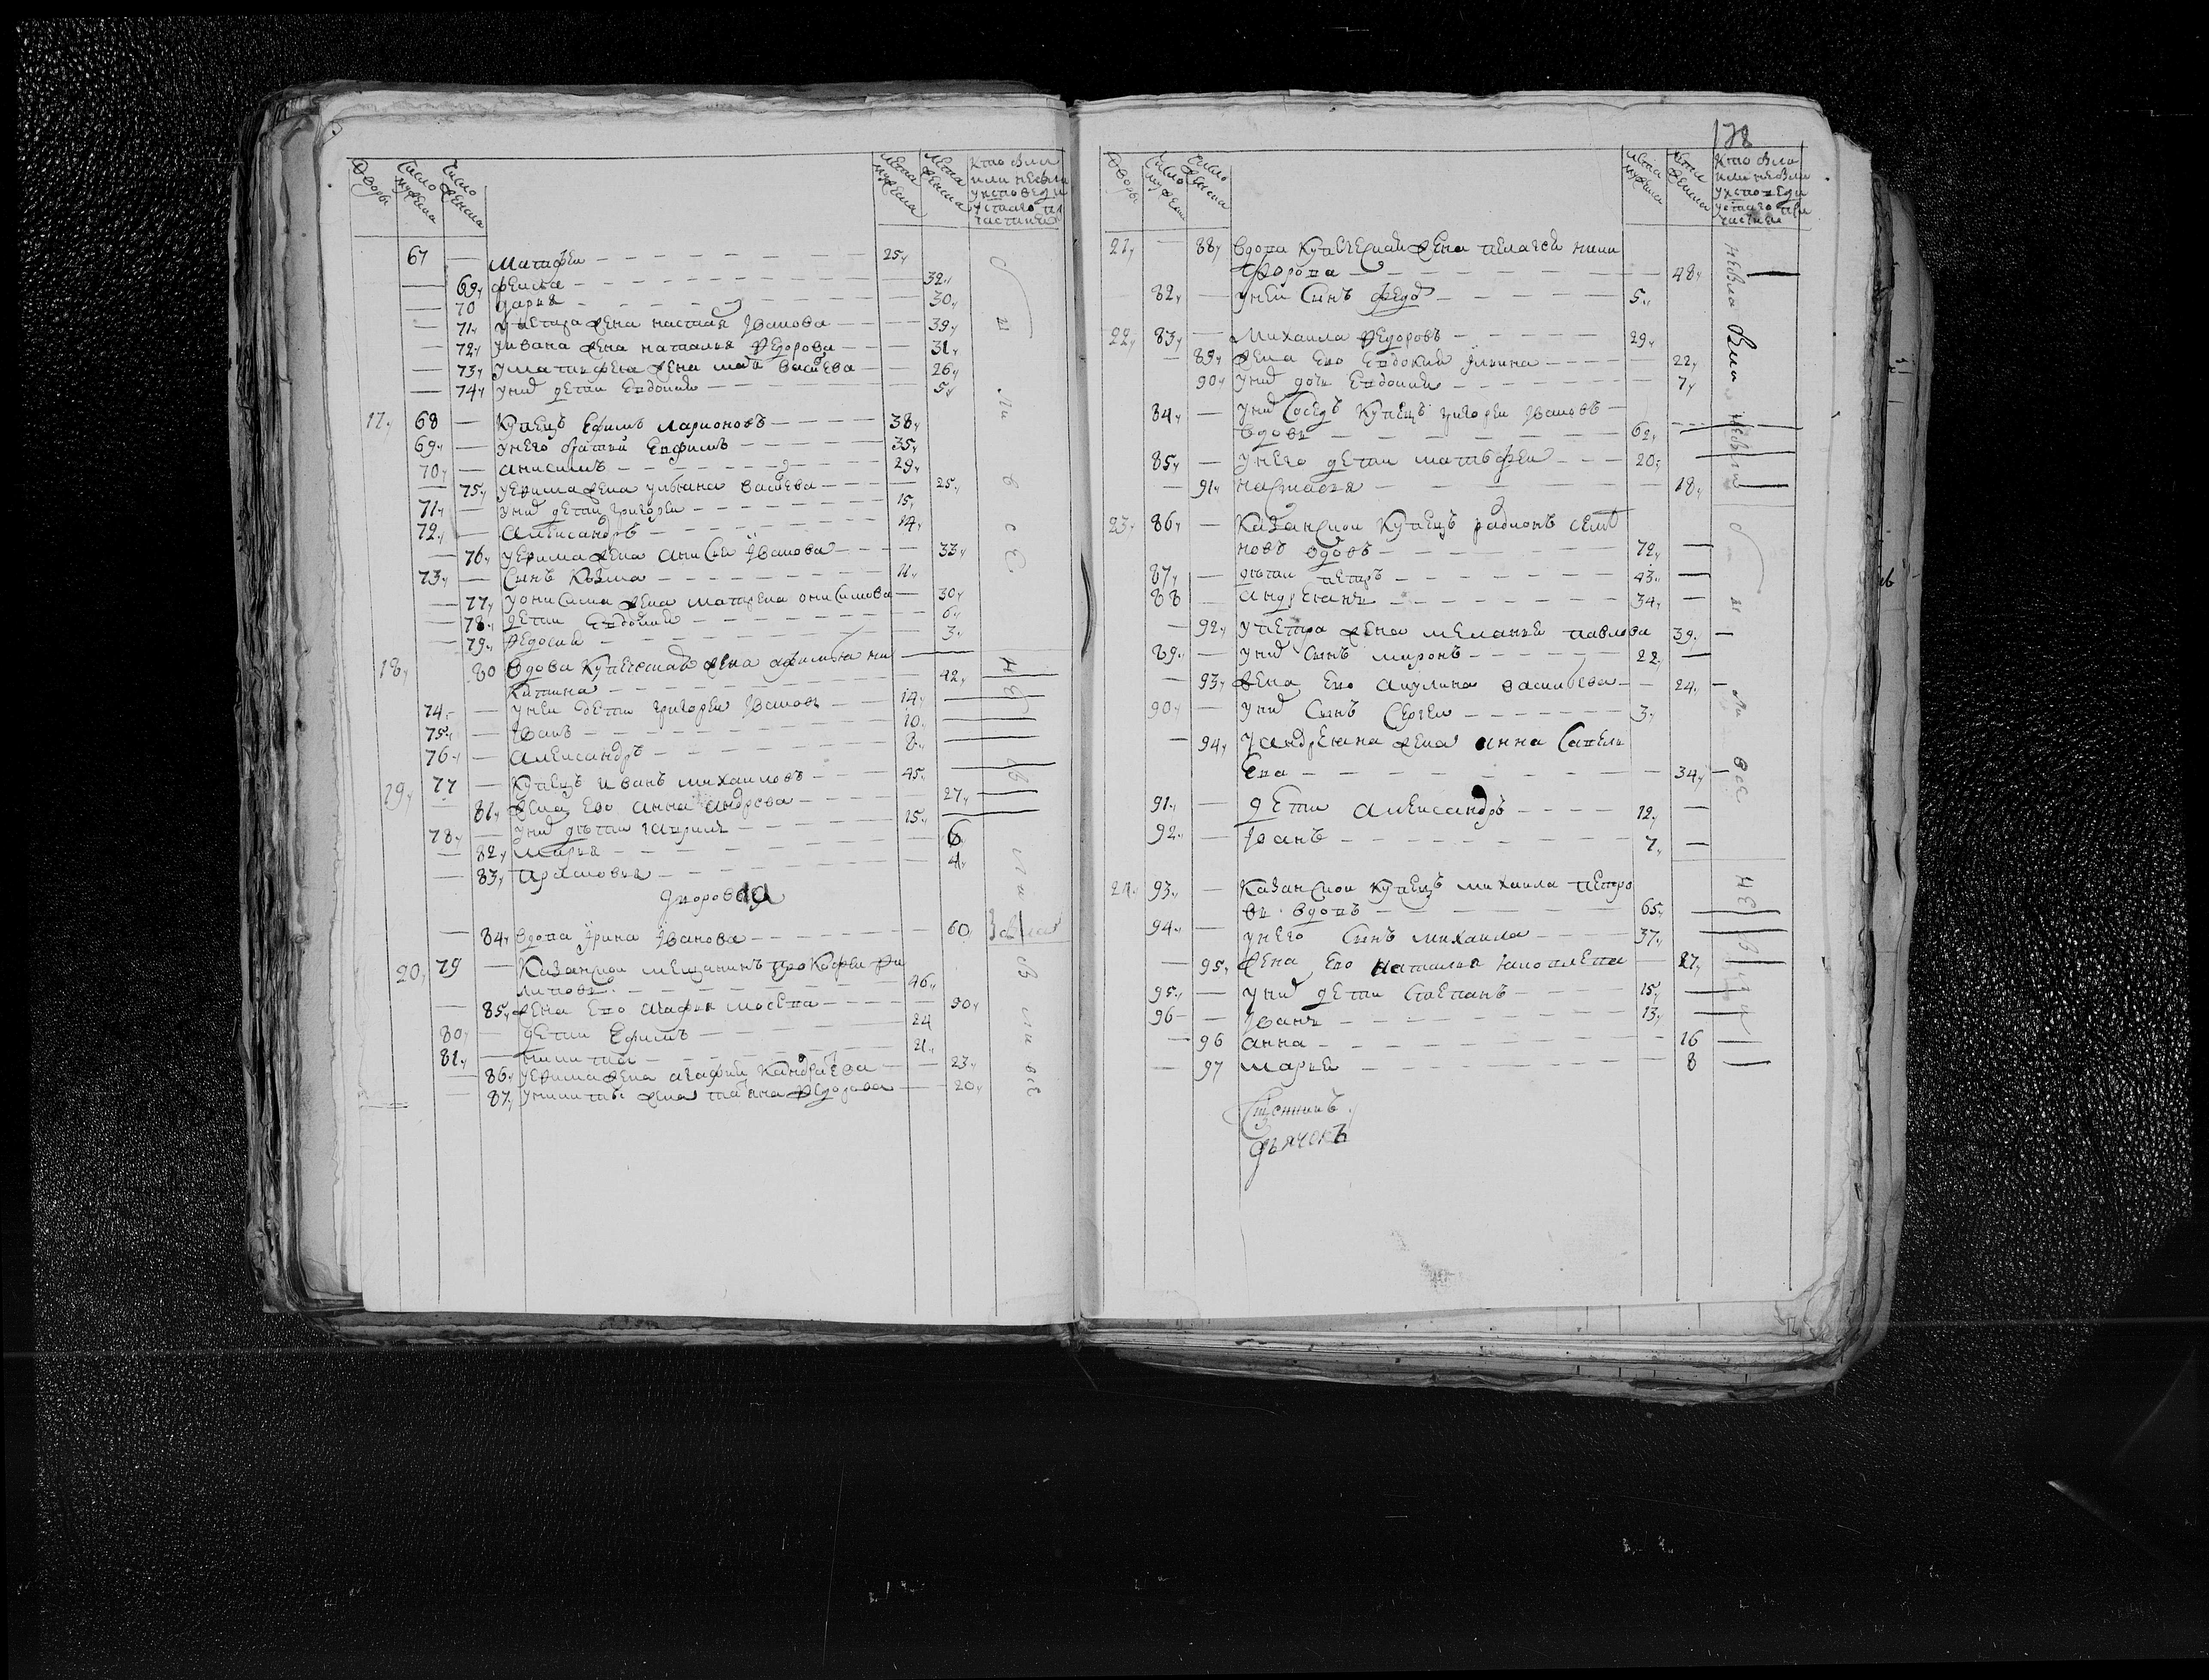 Дворы Число мужеска Число женска Лета мужеска Лета женска Кто были
или не были
у исповеди
и у стаго при
частия
67 — Матфеи — 25
— 69 феиста — 32
— 70 дарья — 30
— 71 у петра жена настасья Иванова — 39
— 72 у ивана жена наталья Федорова — 31
— 73 у матфея жена васильева — 26
— 74 у них дети Евдокия — 5
17 68 — Купецъ Ефимъ Ларионовъ — 38
69 — у него братья Евфимъ — 35
70 — анисимъ — 29
— 75 у ефима жена ульяна васильева — 25
71 — у них дети григореи — 15
72 — александръ — 14
— 76 у ефима жена анисья Иванова — 33
73 — сынъ Козма — 11
— 77 у онисима жена матрена онисимова — 30
— 78 дети Евдокия — 6
— 79 Федосия — 3
18 80 вдова купеческая жена афимья ни
китина — 42
74 — у неи дети григореи Ивановъ — 14
75 — Иванъ — 10
76 — александръ — 8
19 77 — Купецъ иванъ михаиловъ — 45
— 81 жена ево анна андреева — 27
78 — у них дети гаврилъ — 15
— 82 марья — 6
— 83 — 4
дворовая
— 84 вдова Ирина Иванова — 60 была
20 79 — Казанскои мещанинъ прокофеи фи
липовъ — 46
— 85 жена ево агафья мосеева — 50
80 — дети Ефимъ — 24
81 — никита — 21
— 86 у ефима жена агафия кандратева — 23
— 87 у никиты жена татьяна Федорова — 20
и ли все
не были
были все
178
Дворы Число мужеска Число женска Лета мужеска Лета женска Кто были
или не были
у исповеди
и у стаго при
частия
21 — 88 вдова купеческая жена пелагея ники
форова — 48
82 — у неи сынъ федоръ — 5
22 83 — Михаила Федоровъ — 29
— 89 жена ево Евдокия Ильина — 22
— 90 у них дочь Евдокия — 7
84 — у них соседъ купецъ григореи Ивановъ
вдовъ — 62
85 — у него дети матфеи — 20
— 91 настасья — 18
23 86 — Казанскои купецъ радионъ семе
новъ вдовъ — 72
87 — дети петръ — 43
88 андреянъ — 34
— 92 у петра жена меланья павлова 39
89 — у них сынъ миронъ — 22
— 93 жена ево акулина васильева — 24
90 — у них сынъ Сергеи — 3
— 94 у андреяна жена анна савель
ева — 34
91 — дети александръ — 12
92 — Иванъ — 7
24 93 — Казанскои купецъ михаила петро
въ вдовъ — 65
94 — у него сынъ михаила — 37
— 95 жена ево наталья — 27
95 — у них дети степанъ — 15
96 — Иванъ — 13
— 96 анна — 16
— 97 марья — 8
Сщенникъ
Дьячокъ
не была
были
не были
и ли все
не были